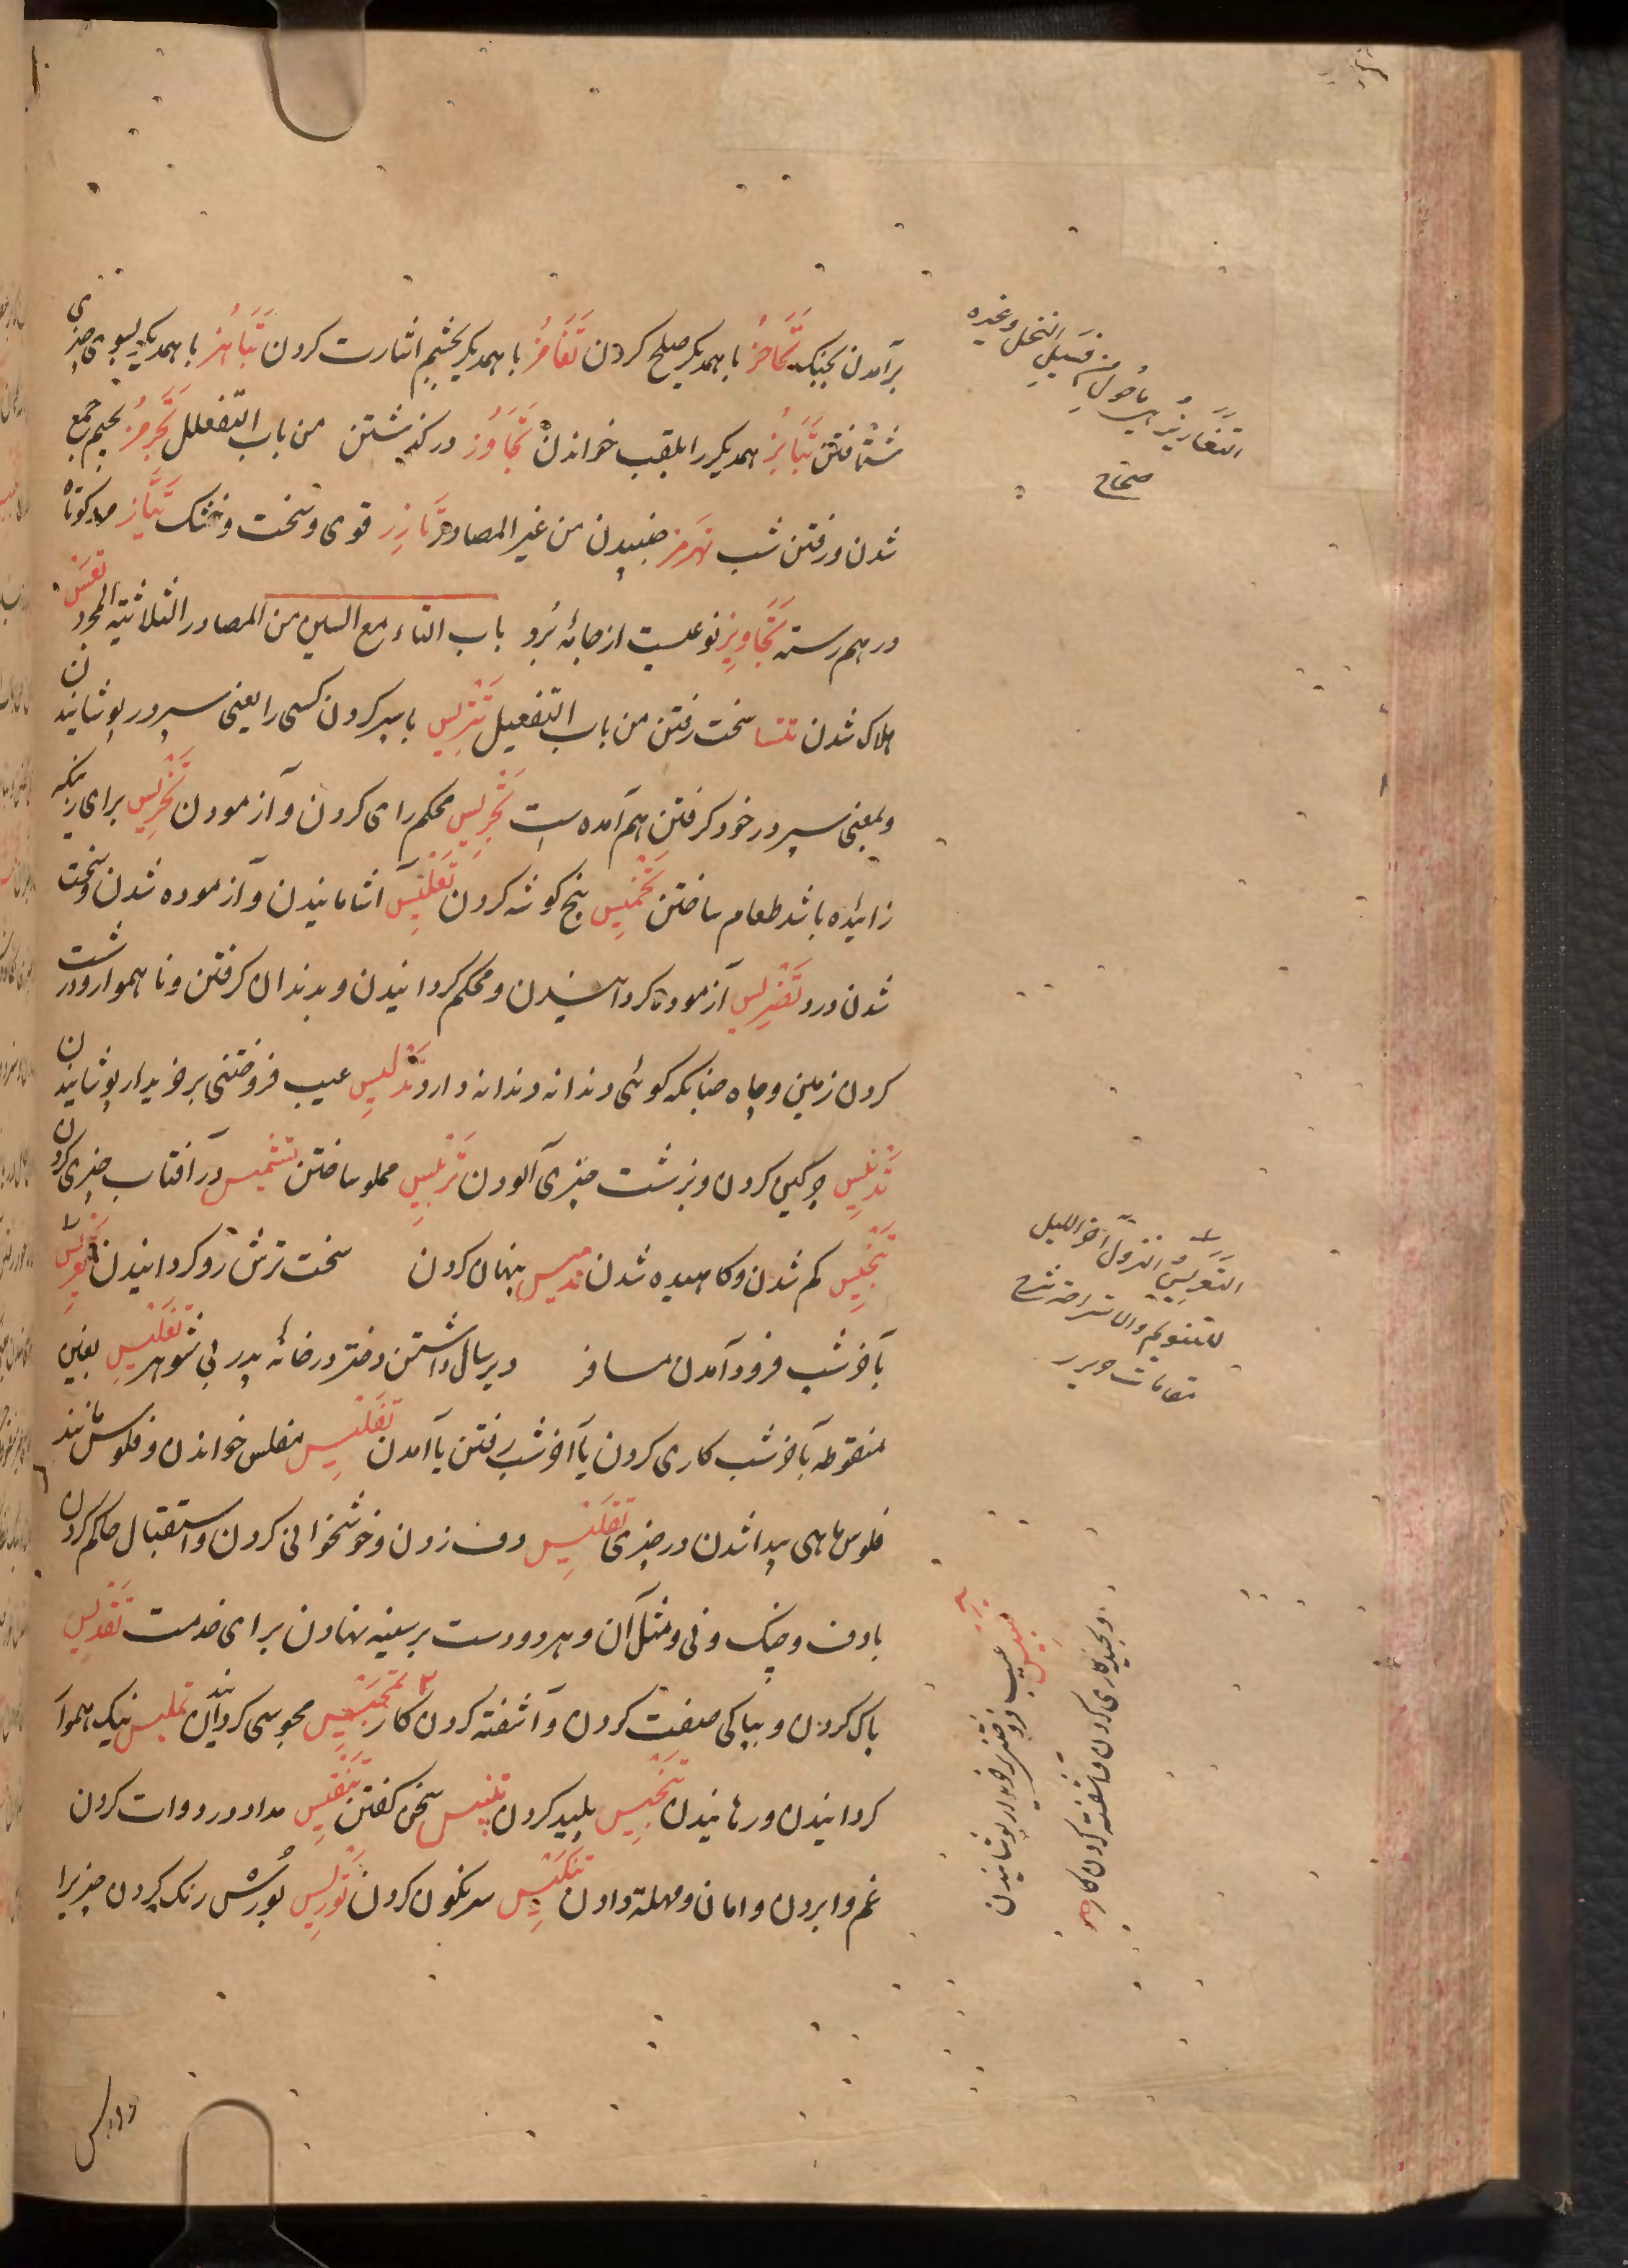 برآمدن بجنک تَحَاجُز با همدیکر صلح کردن تَغَامُز با همدیکر بچشم اشارت کردن تَنَاهُز با همدیکر بسوی چیزی
شتافتن تَنَابُز همدیکر را بلقب خواندن تَجَاوُز درکذشتن من باب التفعلل تَجَرْمُز بجیم جمع
شدن و رفتن شب تهرمز جنبیدن من غیر المصادر تَارِز قوی و سخت و خشک تَیَّاز مرد کوتاه
در هم رسته تَجَاوِیز نوعیست از جامهٔ بُرد باب التاء مع السین من المصادر الثلاثیة المجرد تعس
هلاک شدن سخت رفتن من باب التفعیل تَتْرِیس با سپر کردن کسی را یعنی سپر در پوشانیدن
و بمعنی سپر در خود کرفتن هم آمده است تَجْرِیس محکم رای کردن و آزمودن تَخْرِیس برای زنیکه
زائیده باشد طعام ساختن تَخْمِیس پنج کوشه کردن آشامانیدن و آزموده شدن و سخت
شدن درد تَضْرِیس آزموده کردانیدن و محکم کردانیدن و بدندان کرفتن و ناهموار و درشت
کردن زمین و چاه چنانکه کوئی دندانه دندانه دارد تَدْلِیس عیب فروختنی بر خریدار پوشانیدن
تَدْنِیس چرکین کردن و بزشت چیزی آلودن مملو ساختن تشمیس در آفتاب چیزی کردن
تَنْجِیس کم شدن و کاهیده شدن پنهان کردن سخت ترش رو کردانیدن تَعْرِیس
بآخر شب فرود آمدن مسافر دیر سال داشتن دختر در خانهٔ پدر بی شوهر تَغْلِیس بغین
منقوطه بآخر شب کاری کردن یا آخر شب رفتن یا آمدن تَفْلِیس مفلس خواندن و فلوس مانند
فلوس ماهی پیدا شدن در چیزی تَقْلِیس دف زدن و خوشخوانی کردن و استقبال حاکم کردن
با دف و چنک و نی و مثل آن و هر دو دست بر سینه نهادن برای خدمت تَقْدِیس
پاک کردن و بپاکی صفت کردن و آشفته کردن کار تَمْجِیس مجوسی کردانیدن تملیس نیک هموار
کردانیدن و رهانیدن تَنْجِیس پلید کردن سخن کفتن تَنْقِیس مداد در دوات کردن
غم وا بردن و امان و مهلت دادن تَنْکِیس سرنکون کردن تَوْرِیس بورس رنک کردن چیزیرا
التَّعْرِیس النزول آخر اللیل
للتنویم والاستراحة شرح
مقامات حریر
صحاح
تلبیس عیب فروختنی بر خریدار پوشانیدن
و آشفته کردن کار